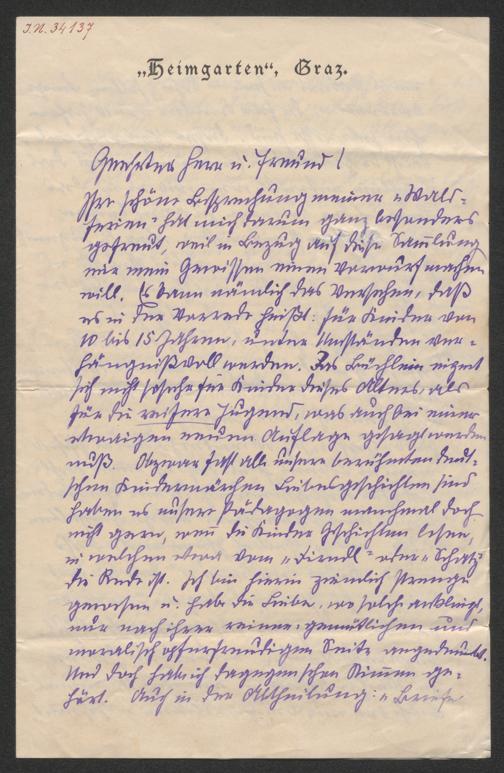 J.N. 34137
„Heimgarten“, Graz.
Geehrter Herr u. Freund!
Ihre schöne Besprechung meiner „Wald-
ferien“ hat mich darum ganz besonders
gefreut, weil in Bezug auf diese Sammlung
mir mein Gewissen einen Vorwurf machen
will. Es kann nämlich das Versehen, daß
es in der Vorrede heißt: für Kinder von
10 bis 15 Jahren, unter Umständen ver-
hängnißvoll werden. Das Büchlein eignet
sich nicht sosehr für Kinder dieses Alters, als
für die reifere Jugend, was auch bei einer
etwaigen neuen Auflage gesagt werden
muß. Obzwar fast alle unsere berühmten deut-
schen Kindermärchen Liebesgeschichten sind
haben es unsere Pädagogen manchmal doch
nicht gern, wenn die Kinder Geschichten lesen,
in welchen etwa vom „Dirndl“ oder „Schatz“
die Rede ist. Ich bin hierin ziemlich strenge
gewesen u. habe die Liebe, wo solche anklingt,
nur nach ihrer reinen, gemütlichen und
moralisch opferfreudigen Seite angedeutet.
Und doch habe ich dagegen schon Stimmen ge-
hört. Auch in der Abtheilung: „Briefe